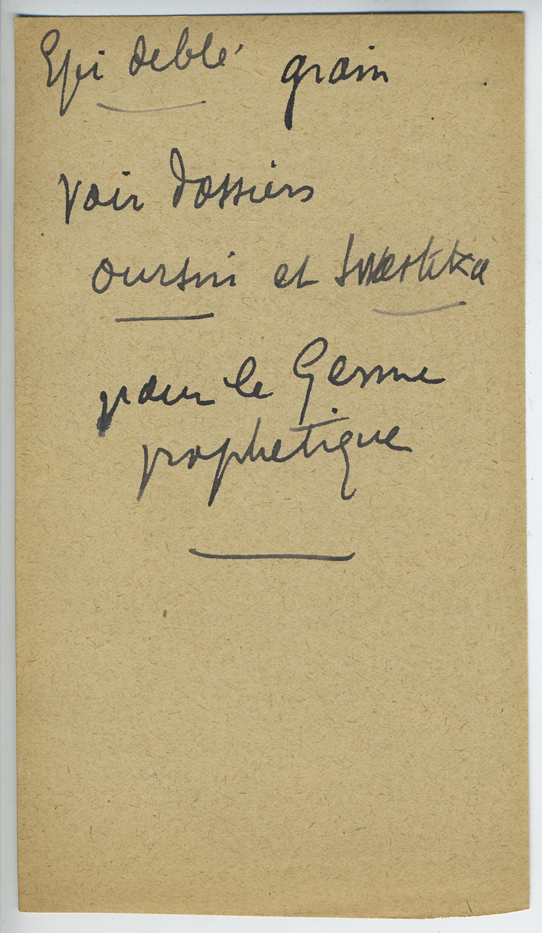 Epi de blé grain
voir dossiers
oursin et Swastika
pour le Germe
prophetique